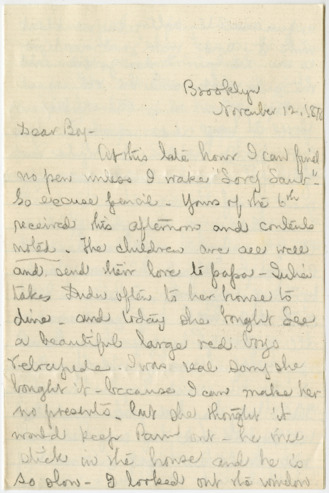 Brooklyn
November 12, 187
Dear Boy-
At this late hour I can find
no pen unless I wake
So excuse pencil - Yours of the 6th
received this afternoon and contents
noted - The children are all well
and send their love to papa - Julie
takes often to her house to
dine - and today she bought Lee
a beautiful large red boys
velocipede. I was real sorry she
bought it - because I can make her
no presents - but she thought it
would keep him out - he will
stick in the house and he is
so slow - I looked out the window